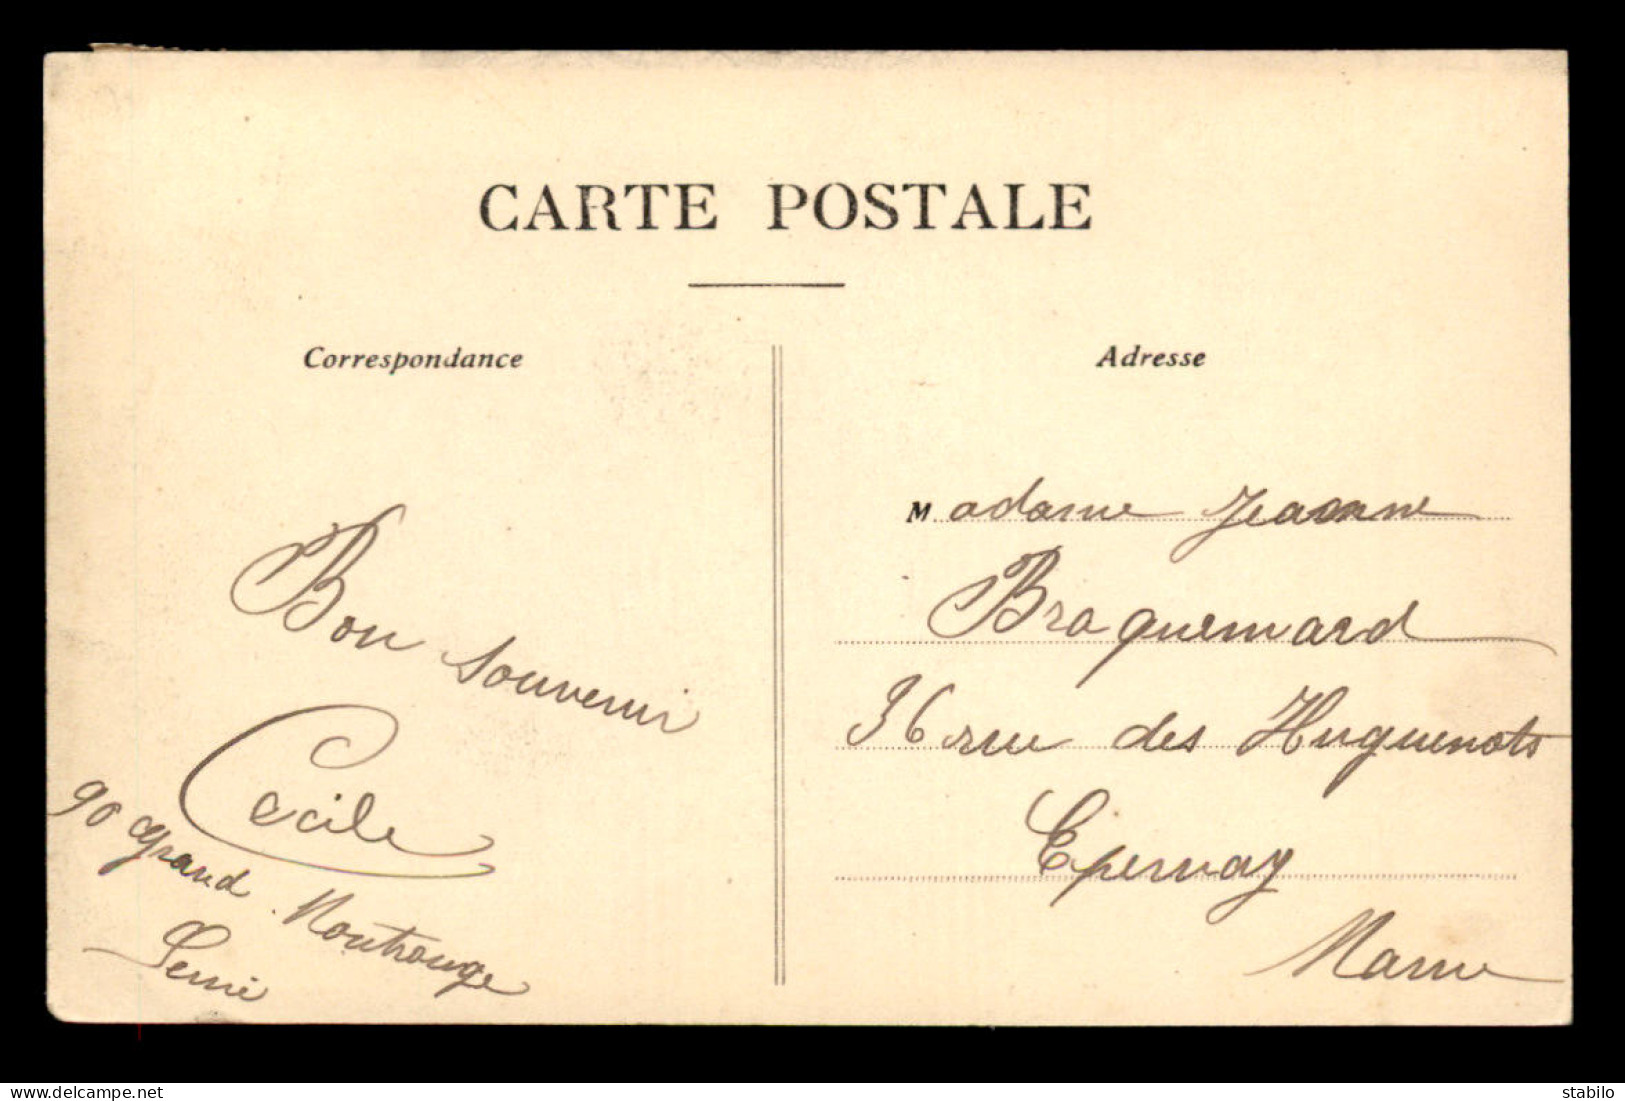 CARTE POSTALE
Correspondance
Bon souvenir
Cecile
90 grand Montrouge
Adresse
Madame Jeanne
Braquemard
36 rue des Huguenots
Epernay
Marne
www.delcampe.net
stabilo